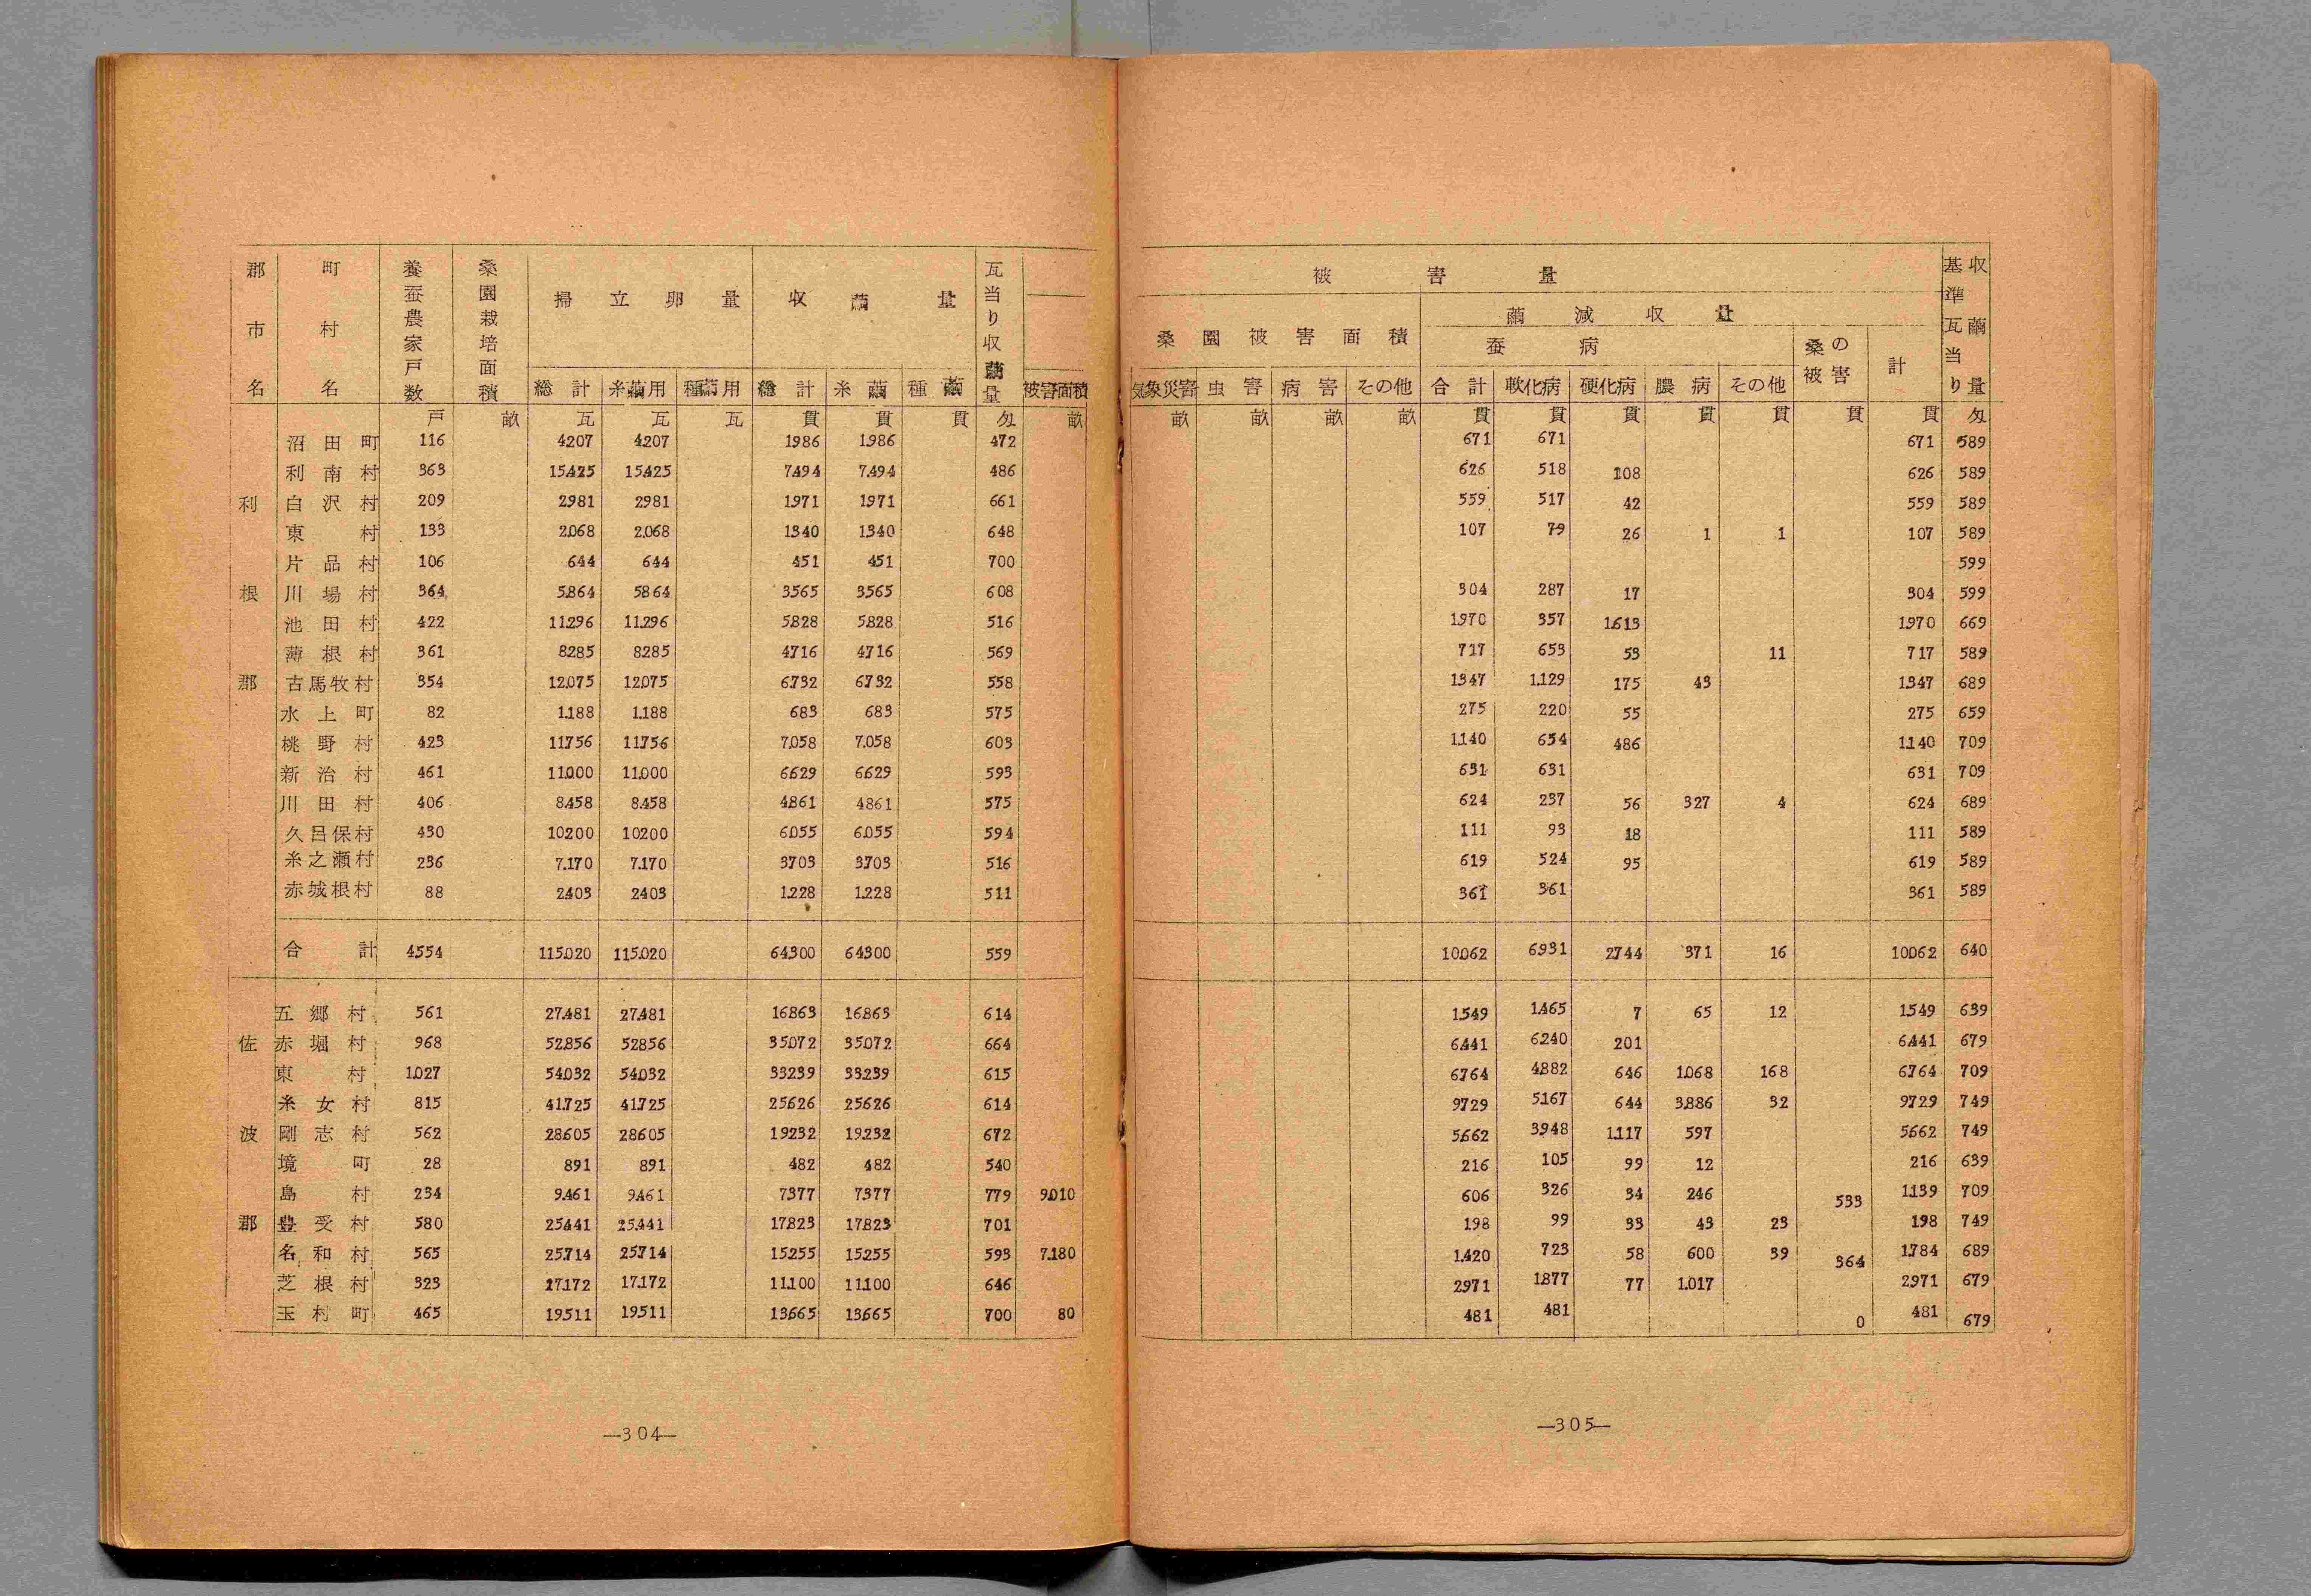 郡市名 町村名 養蚕農家戸数 桑園栽培面積 掃立卵量 収繭量 瓦当り収繭量
総計 糸繭用 種繭用 総計 糸繭 種繭 被害面積
戸 畝 瓦 瓦 瓦 貫 貫 貫 匁 畝
利根郡
沼田町 116 4207 4207 1986 1986 472
利南村 363 15425 15425 7494 7494 486
白沢村 209 2981 2981 1971 1971 661
東村 133 2068 2068 1340 1340 648
片品村 106 644 644 451 451 700
川場村 364 5864 5864 3565 3565 608
池田村 422 11296 11296 5828 5828 516
薄根村 361 8285 8285 4716 4716 569
古馬牧村 354 12075 12075 6732 6732 558
水上町 82 1188 1188 683 683 575
桃野村 423 11756 11756 7058 7058 603
新治村 461 11000 11000 6629 6629 593
川田村 406 8458 8458 4861 4861 575
久呂保村 430 10200 10200 6055 6055 594
糸之瀬村 236 7170 7170 3703 3703 516
赤城根村 88 2403 2403 1228 1228 511
合計 4554 115020 115020 64300 64300 559
佐波郡
五郷村 561 27481 27481 16863 16863 614
赤堀村 968 52856 52856 35072 35072 664
東村 1027 54032 54032 33239 33239 615
糸女村 815 41725 41725 25626 25626 614
剛志村 562 28605 28605 19232 19232 672
境町 28 891 891 482 482 540
島村 234 9461 9461 7377 7377 779 9010
豊受村 580 25441 25441 17823 17823 701
名和村 565 25714 25714 15255 15255 593 7180
芝根村 323 17172 17172 11100 11100 646
玉村町 465 19511 19511 13665 13665 700 80
—304—
被害量 基準瓦当り収繭量
桑園被害面積 繭減収量
蚕病 桑の被害 計
気象災害 虫害 病害 その他 合計 軟化病 硬化病 膿病 その他
畝 畝 畝 畝 貫 貫 貫 貫 貫 貫 貫 匁
671 671 671 589
626 518 108 626 589
559 517 42 559 589
107 79 26 1 1 107 589
599
304 287 17 304 599
1970 357 1613 1970 669
717 653 53 11 717 589
1347 1129 175 43 1347 689
275 220 55 275 659
1140 654 486 1140 709
631 631 631 709
624 237 56 327 4 624 689
111 93 18 111 589
619 524 95 619 589
361 361 361 589
10062 6931 2744 371 16 10062 640
1549 1465 7 65 12 1549 639
6441 6240 201 6441 679
6764 4882 646 1068 168 6764 709
9729 5167 644 3886 32 9729 749
5662 3948 1117 597 5662 749
216 105 99 12 216 639
606 326 34 246 533 1139 709
198 99 33 43 23 198 749
1420 723 58 600 39 364 1784 689
2971 1877 77 1017 2971 679
481 481 0 481 679
—305—